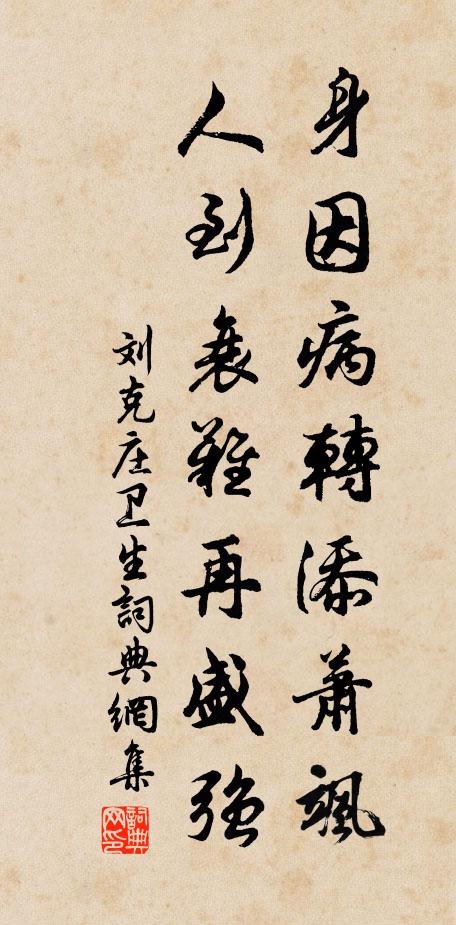 身因病轉添蕭颯
人到衰難再盛強
刘克庄卫生詞典網集
詞典网印